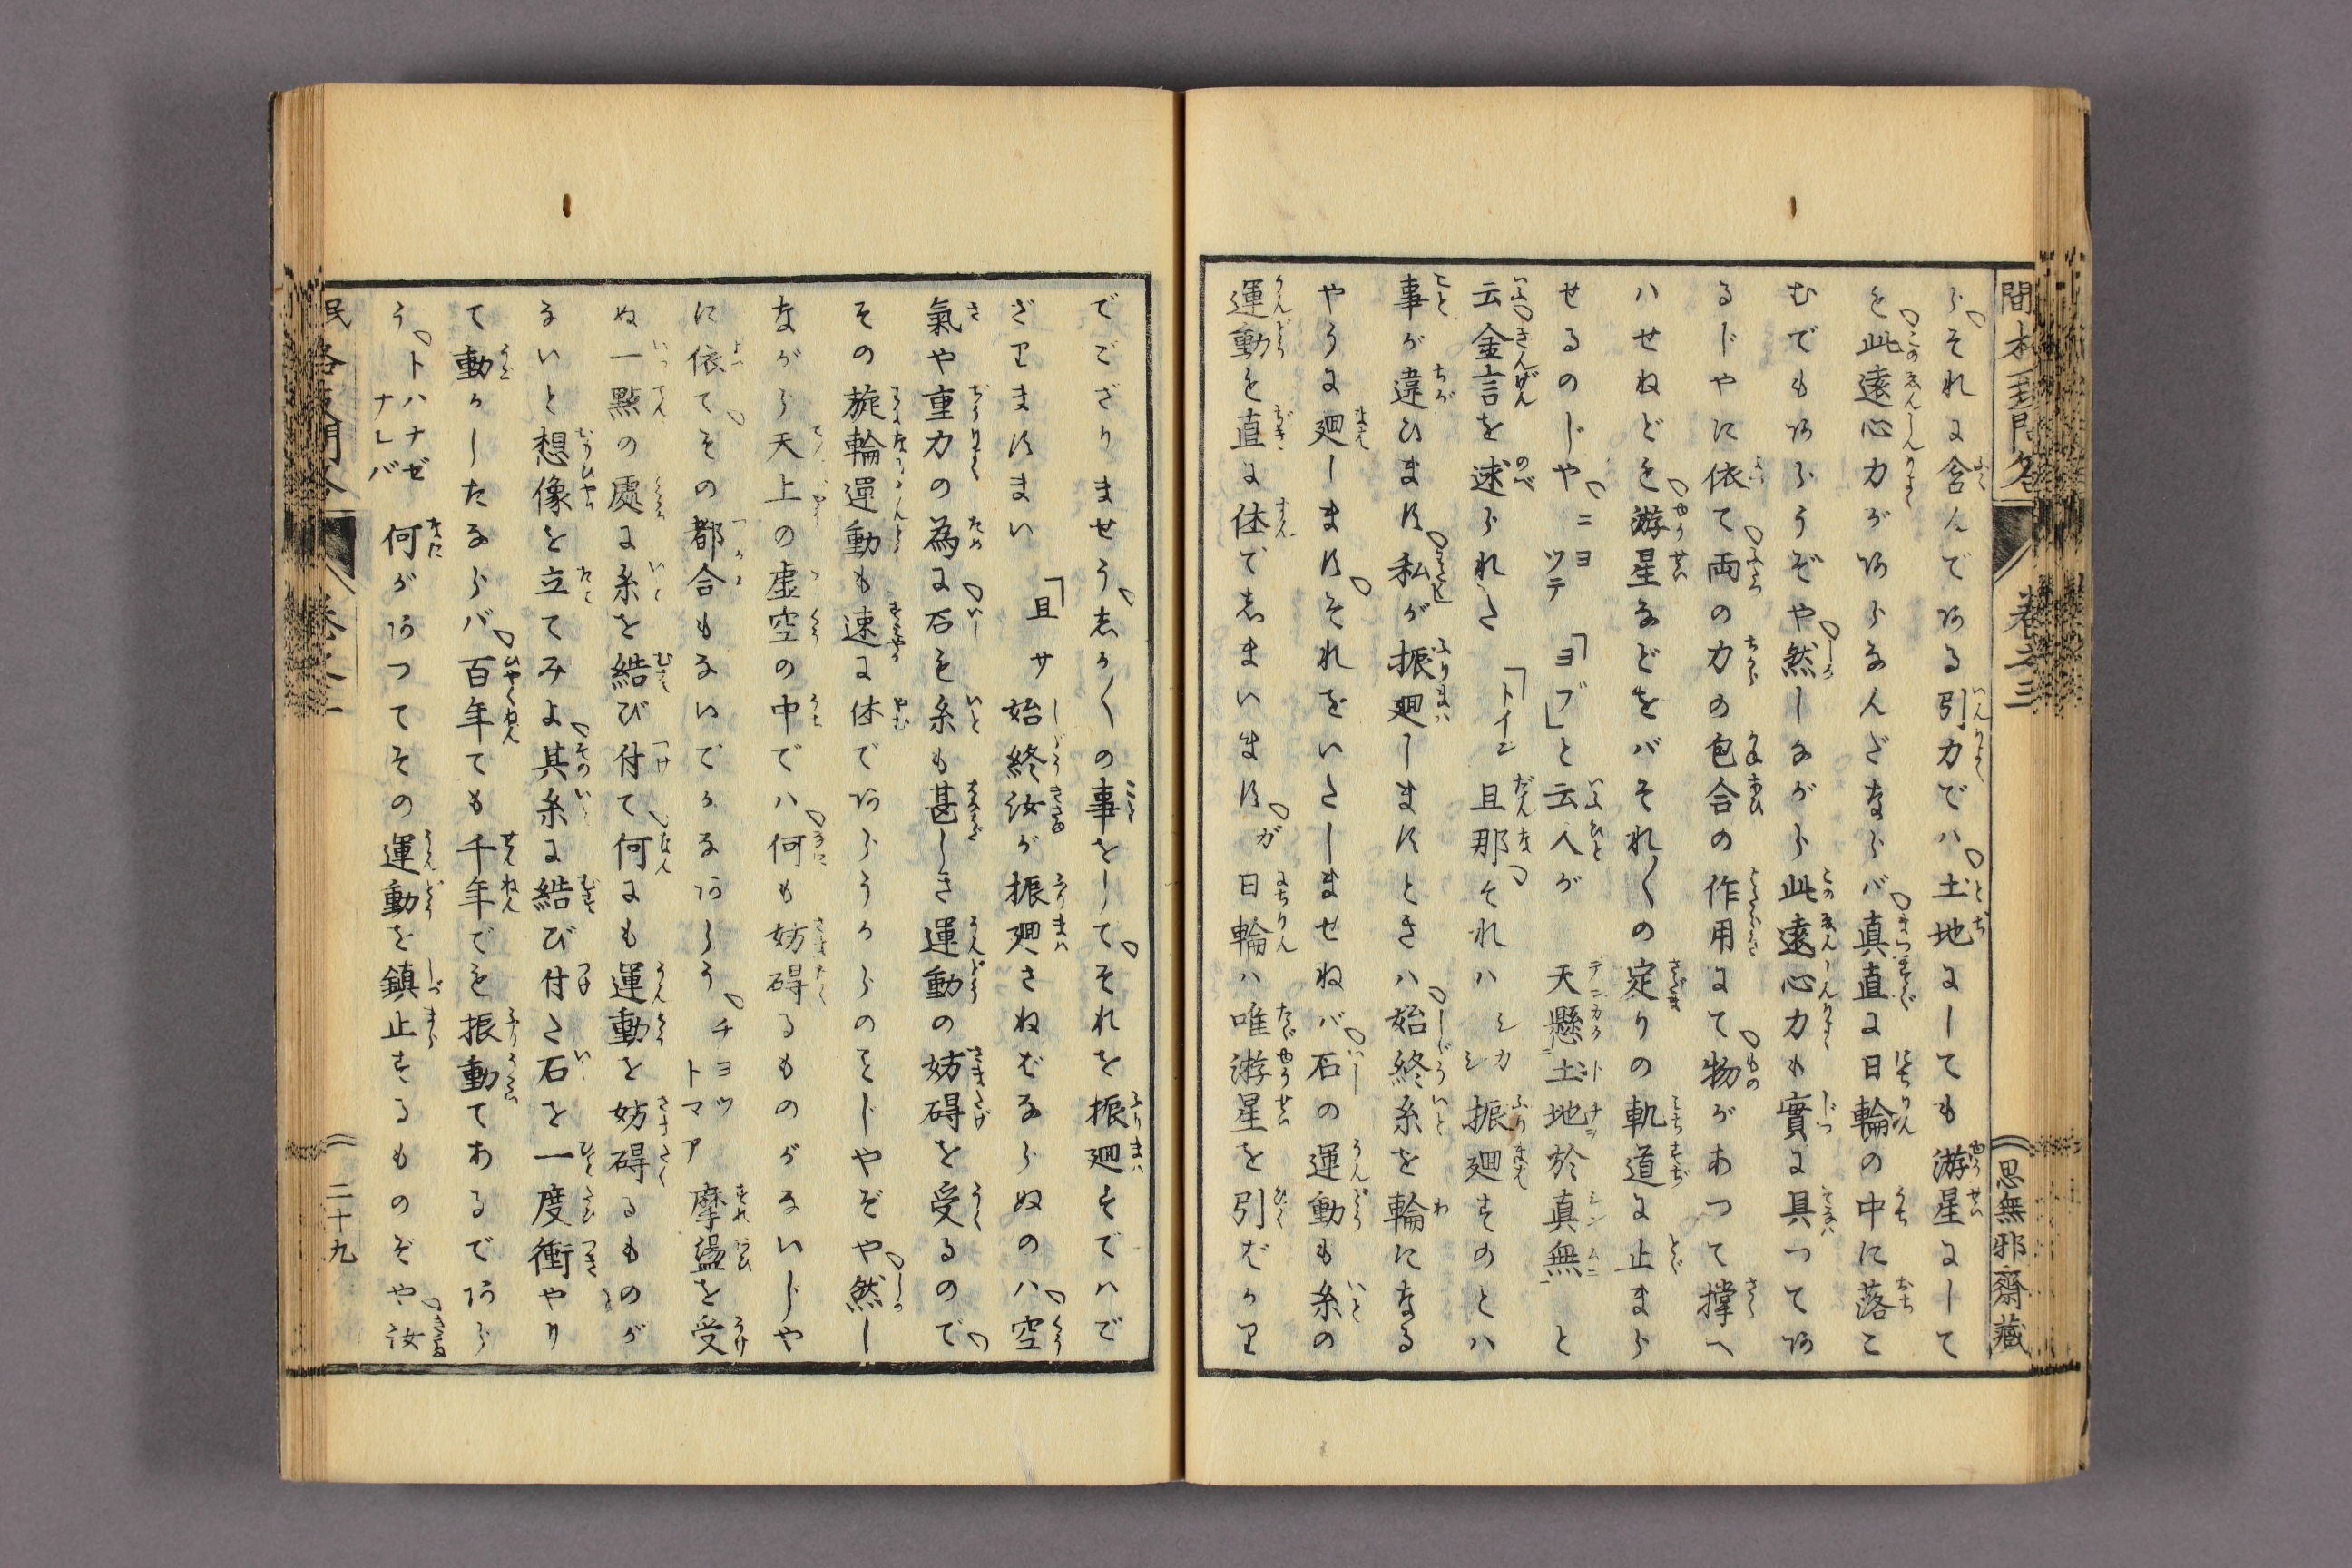 らそれに含んである引力でハ土地にしても游星にして
を此遠心力があらなんだならバ真直に日輪の中に落こ
むでもあらうぞや然しながら此遠心力も實に具つてあ
るじやに依て両の力の包合の作用にて物があつて撑へ
ハせねどを游星などをバそれ〱の定りの軌道に止まら
せるのじや ニヨツテ 「ヨブ」と云人が 天懸土地於真無 と
云金言を述られた 「トイン 且那それハ シカシ 振廻すのとハ
事が違ひます私が振廻しますときハ始終糸を輪になる
やうに廻しますそれをいたしませねバ石の運動も糸の
運動を直に休で志まいます ガ 日輪ハ唯游星を引ばかり
卷之三
思無邪齋藏
でござりませう志か〱の事をしてそれを振廻すでハで
ざりますまい 「且 サ 始終汝が振廻さねばならぬのハ空
氣や重力の為に石も糸も甚しき運動の妨碍を受るので
その旋輪運動も速に休であらうからのことじやぞや然し
ながら天上の虚空の中でハ何も妨碍るものがないじや
に依てその都合もないでかなあらう チヨツトマア 摩盪を受
ぬ一點の處に糸を結び付て何にも運動を妨碍るものが
ないと想像を立てみよ其糸に結び付た石を一度衝やり
て動かしたならバ百年ても千年でを振動てあるであら
う トハナゼナレバ 何があつてその運動を鎮止するものぞや汝
二十九